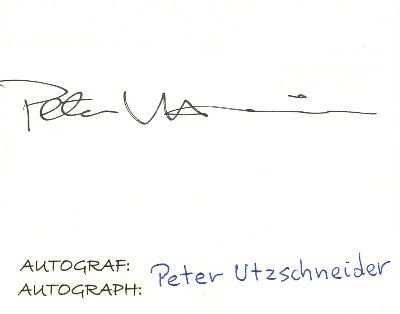 Peter Utzschneider
AUTOGRAF:
AUTOGRAPH: Peter Utzschneider